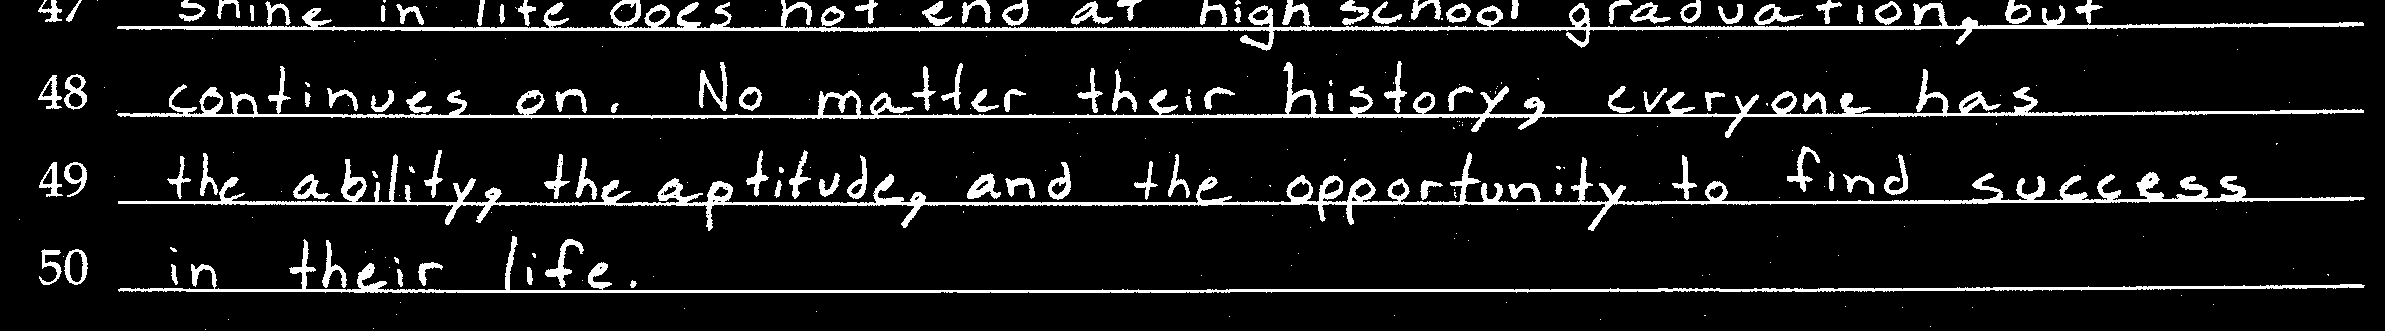 47 shine in life does not end at high school graduation, but
48 continues on. No matter their history, everyone has
49 the ability, the aptitude, and the opportunity to find success
50 in their life.